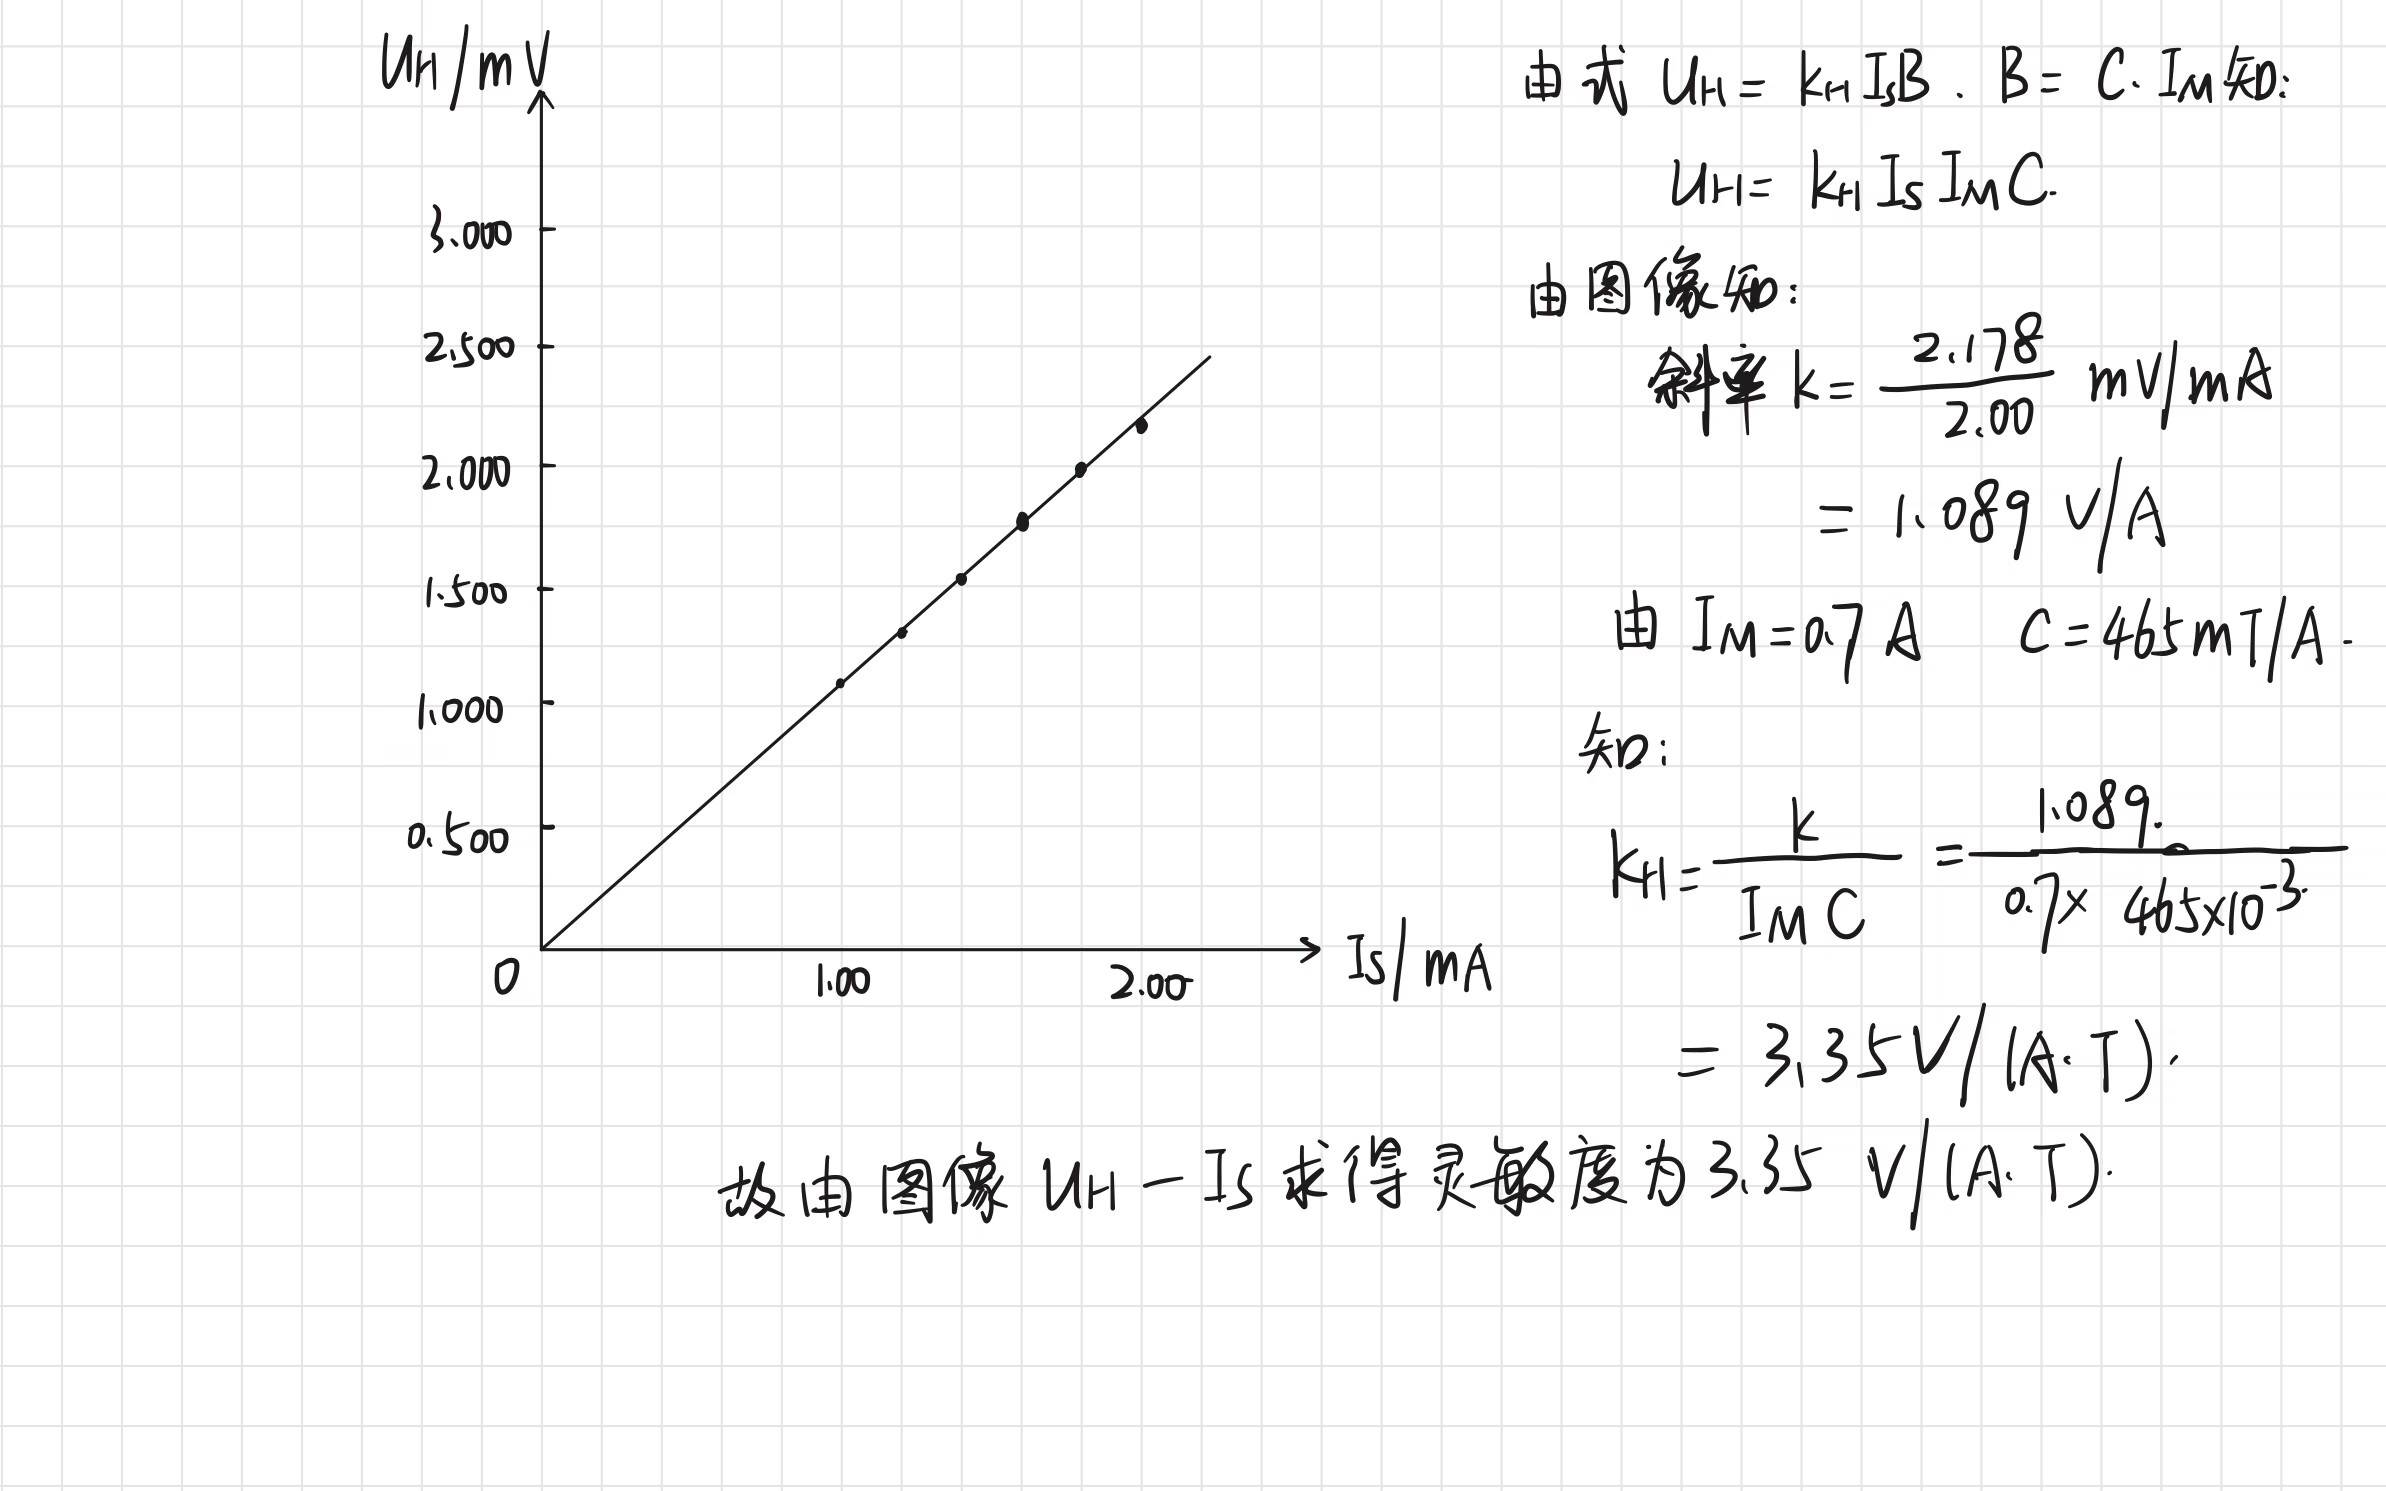 U_H/mV
3.000
2.500
2.000
1.500
1.000
0.500
0
1.00
2.00
Is/mA
由式 U_H = k_H I_s B . B = C · I_M 知:
U_H = k_H I_s I_M C.
由图像知:
斜率 k = 2.178/2.00 mV/mA
= 1.089 V/A
由 I_M = 0.7 A C = 465 mT/A.
知:
k_H = k/(I_M C) = 1.089/(0.7 × 465×10^-3)
= 3.35 V/(A·T).
故由图像 U_H — I_s 求得灵敏度为 3.35 V/(A·T).